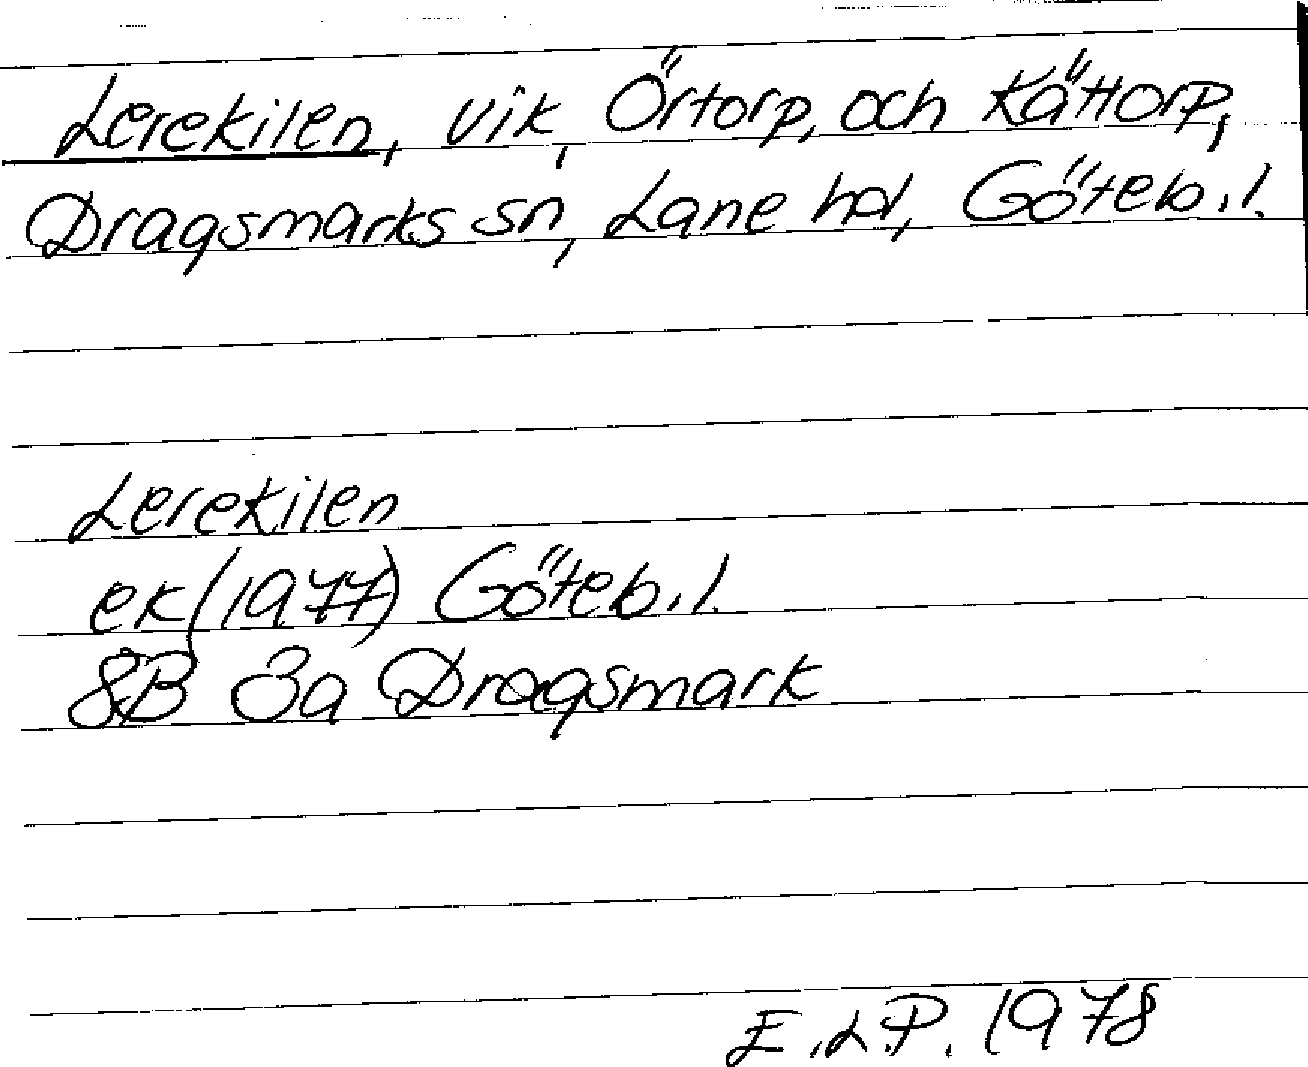 Lerekilen, vik, Örtorp, och Kättorp,
Dragsmarks sn, Lane hd, Göteb.l.
Lerekilen
ek (1977) Göteb.l.
8B 3a Dragsmark
E.L.P. 1978